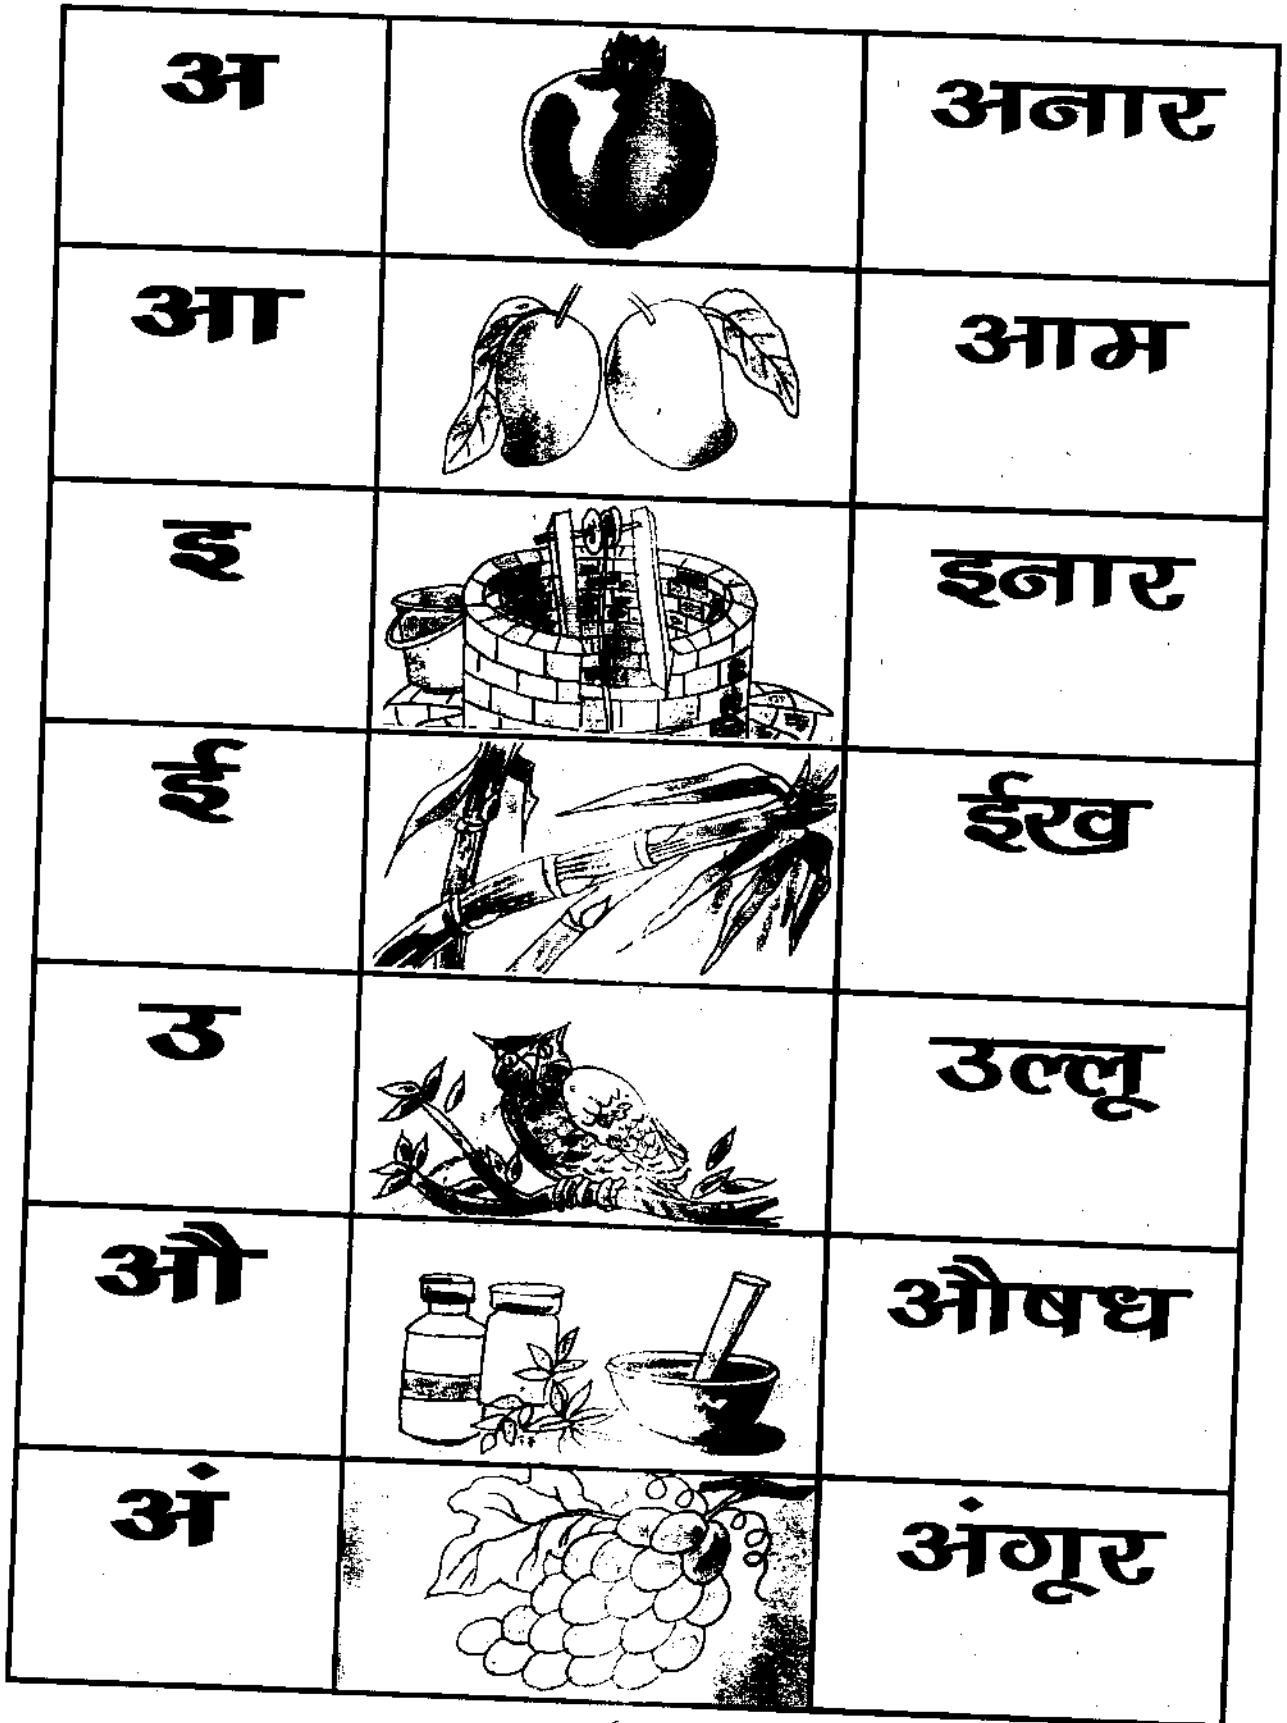 अ अनार
आ आम
इ इनार
ई ईख
उ उल्लू
औ औषध
अं अंगूर